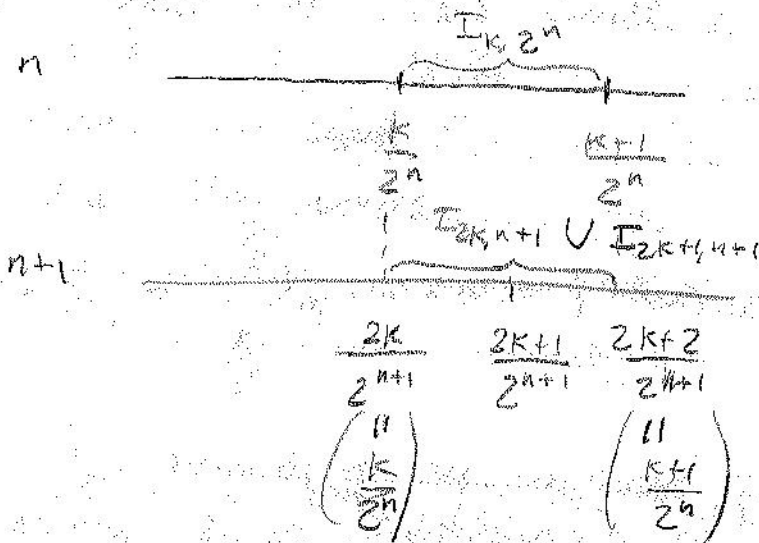 I_{k, 2^n}
n
\frac{k}{2^n} \frac{k+1}{2^n}
I_{2k, n+1} ∪ I_{2k+1, n+1}
n+1
\frac{2k}{2^{n+1}} \frac{2k+1}{2^{n+1}} \frac{2k+2}{2^{n+1}}
( \shortparallel \frac{k}{2^n} ) ( \shortparallel \frac{k+1}{2^n} )